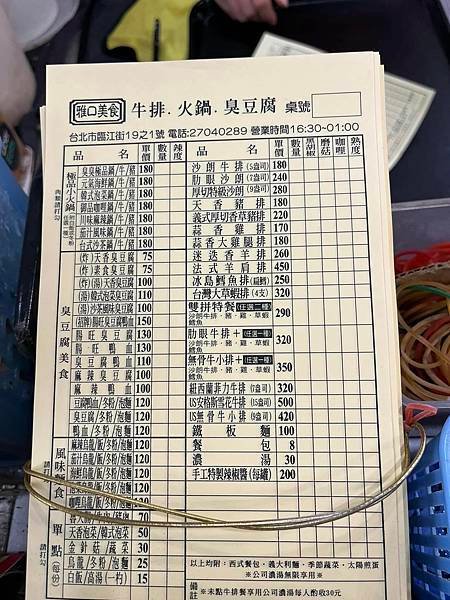 雅口美食 牛排．火鍋．臭豆腐 桌號
台北市臨江街19之1號 電話:27040289 營業時間16:30~01:00
品名 單價 數量 辣度
極品火鍋
肉類請打勾
臭臭極品鍋/牛/豬 180
元氣海鮮鍋/牛/豬 180
韓式泡菜鍋/牛/豬 180
御品咖哩鍋/牛/豬 180
川味麻辣鍋/牛/豬 180
茄汁風味鍋/牛/豬 180
台式沙茶鍋/牛/豬 180
臭豆腐美食
(炸)天香臭豆腐 75
(炸)素食臭豆腐 75
(湯)天香臭豆腐 100
(湯)韓式泡菜臭豆腐 110
(湯)茄汁風味臭豆腐 100
(招牌)腸旺臭豆腐鴨血 150
腸旺臭豆腐 130
腸旺鴨血 130
臭豆腐鴨血 110
麻辣臭豆腐 100
麻辣鴨血 100
風味麵食
請打勾
豆腐鴨血/冬粉/泡麵 120
臭豆腐/冬粉/泡麵 120
鴨血/冬粉/泡麵 120
麻辣烏龍/飯/冬粉/泡麵 120
茄汁烏龍/飯/冬粉/泡麵 120
海鮮烏龍/飯/冬粉/泡麵 120
咖哩烏龍/飯/冬粉/泡麵
單點(每份)
請打勾
70
天香泡菜/韓式泡菜 50
金針菇/蔬菜 30
烏龍/冬粉/泡麵 25
白飯/高湯(一杓) 15
品名 單價 數量 黑胡椒 蘑菇 咖哩 熟度
沙朗牛排(5盎司) 180
肋眼沙朗(7盎司) 240
厚切特級沙朗(9盎司) 280
天香豬排 180
義式厚切香草豬排 220
蒜香雞排 170
蒜香大雞腿排 180
迷迭香羊排 260
法式羊肩排 450
冰島鱈魚排(扁鱈) 250
台灣大草蝦排(4支) 320
雙拼特餐(任選二種) 290
沙朗牛排．豬．雞．草蝦
鱈魚
肋眼牛排+(任選一種) 320
沙朗牛排．豬．雞．草蝦
鱈魚
無骨牛小排+(任選一種) 350
沙朗牛排．豬．雞．草蝦
鱈魚
紐西蘭菲力牛排(7盎司) 320
US安格斯雪花牛排(15盎司) 500
US無骨牛小排(8盎司) 420
鐵板麵 100
餐包 8
濃湯 30
手工特製辣椒醬(每罐) 200
備註
以上均附：西式餐包．義大利麵．季節蔬菜．太陽煎蛋
※公司濃湯無限享用※
※未點牛排餐享用公司濃湯每人酌收30元